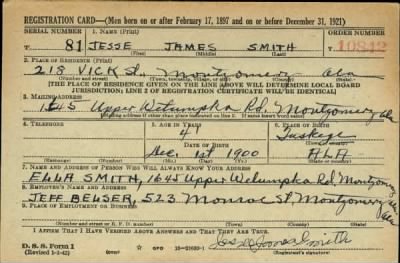 REGISTRATION CARD—(Men born on or after February 17, 1897 and on or before December 31, 1921)
SERIAL NUMBER 1. NAME (Print) ORDER NUMBER
81 JESSE JAMES SMITH 10842
(First) (Middle) (Last)
2. PLACE OF RESIDENCE (Print)
218 VICK St. Montgomery Ala
(Number and street) (Town, township, village, or city) (County) (State)
[THE PLACE OF RESIDENCE GIVEN ON THE LINE ABOVE WILL DETERMINE LOCAL BOARD
JURISDICTION; LINE 2 OF REGISTRATION CERTIFICATE WILL BE IDENTICAL]
3. MAILING ADDRESS
1645 Upper Wetumpka Rd. Montgomery Ala
[Mailing address if other than place indicated on line 2. If same insert word same]
4. TELEPHONE 5. AGE IN YEARS 6. PLACE OF BIRTH
4 Tuskege
DATE OF BIRTH
Dec. 1st 1900 ALA
(Exchange) (Number) (Mo.) (Day) (Yr.) (State or country)
7. NAME AND ADDRESS OF PERSON WHO WILL ALWAYS KNOW YOUR ADDRESS
ELLA SMITH, 1645 Upper Wetumpka Rd. Montgomery Ala
8. EMPLOYER'S NAME AND ADDRESS
JEFF BELSER, 523 Monroe St, Montgomery Ala
9. PLACE OF EMPLOYMENT OR BUSINESS
(Number and street or R. F. D. number) (Town) (County) (State)
I AFFIRM THAT I HAVE VERIFIED ABOVE ANSWERS AND THAT THEY ARE TRUE.
D. S. S. Form 1
(Revised 1-1-42) (over) GPO 16—21630-1 Smith
(Registrant's signature)